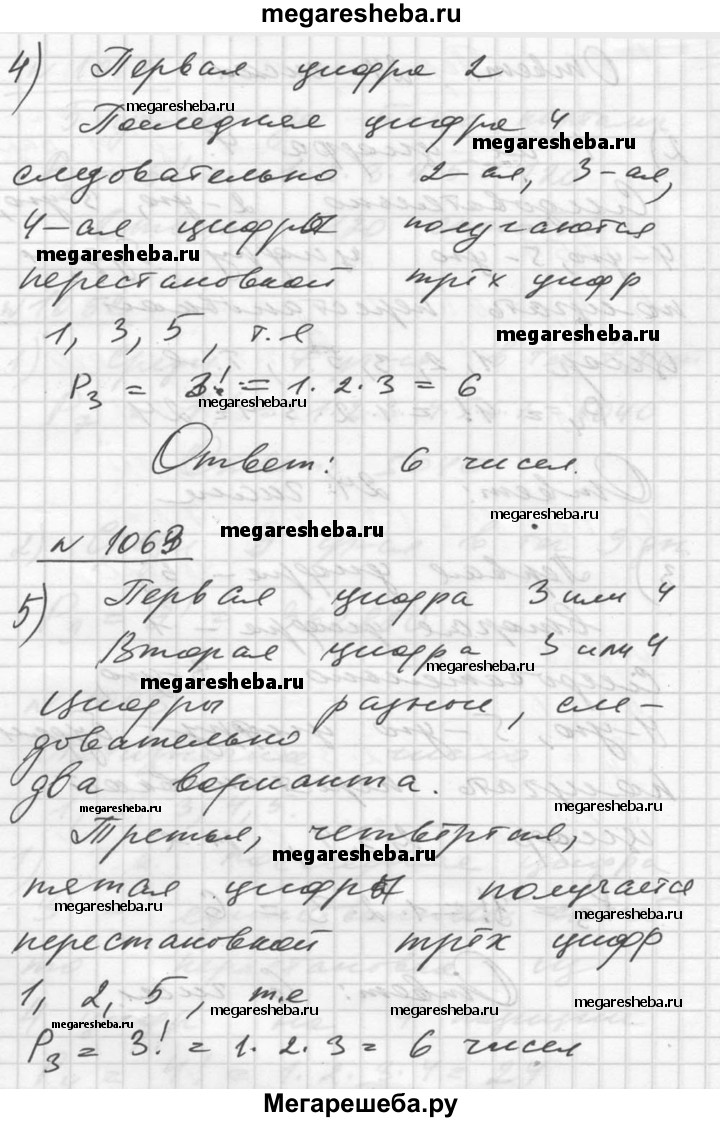 megaresheba.ru
4) Первая цифра 2
megaresheba.ru
Последняя цифра 4
megaresheba.ru
следовательно 2-ая, 3-ая,
4-ая цифры получаются
megaresheba.ru
перестановкой трёх цифр
1, 3, 5, т.е
megaresheba.ru
P₃ = 3! = 1·2·3 = 6
megaresheba.ru
Ответ: 6 чисел.
megaresheba.ru
megaresheba.ru
№ 1063
5) Первая цифра 3 или 4
Вторая цифра 3 или 4
megaresheba.ru
megaresheba.ru
Цифры разные, сле-
довательно
два варианта.
megaresheba.ru megaresheba.ru
Третья, четвёртая,
megaresheba.ru
пятая цифры получается
megaresheba.ru megaresheba.ru
перестановкой трёх цифр
1, 2, 5, т.е
megaresheba.ru megaresheba.ru megaresheba.ru
megaresheba.ru
P₃ = 3! = 1·2·3 = 6 чисел
Мегарешеба.ру